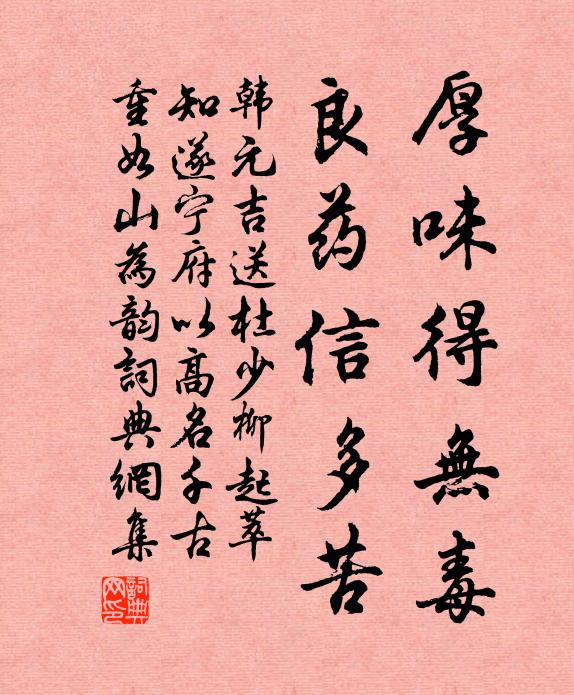 厚味得無毒
良药信多苦
韩元吉送杜少柳起萃
知遂宁府以高名千古
重如山為韵詞典網集
詞典网印